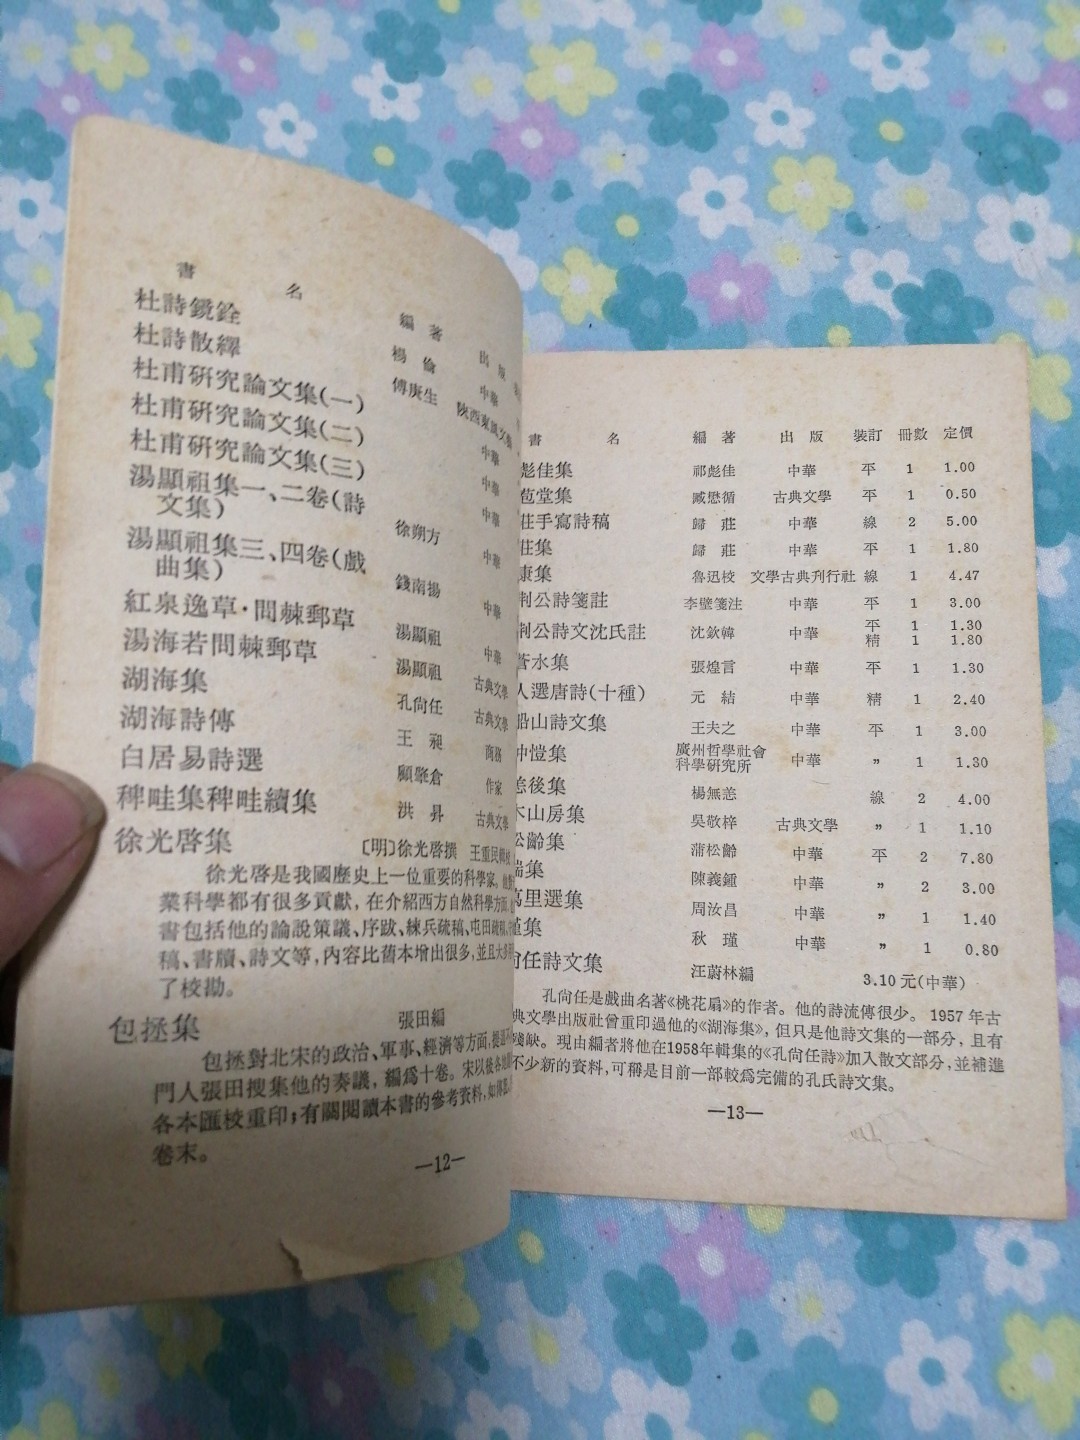 書　名　編 著　出 版
杜詩鏡銓　楊 倫　中華
杜詩散繹　傅庚生　陝西東風文藝
杜甫研究論文集(一)　中華
杜甫研究論文集(二)　中華
杜甫研究論文集(三)　中華
湯顯祖集一、二卷(詩文集)　徐朔方　中華
湯顯祖集三、四卷(戲曲集)　錢南揚　中華
紅泉逸草·問棘郵草　湯顯祖　中華
湯海若問棘郵草　湯顯祖　古典文學
湖海集　孔尙任　古典文學
湖海詩傳　王 昶　商務
白居易詩選　顧肇倉　作家
稗畦集稗畦續集　洪 昇　古典文學
徐光啓集　〔明〕徐光啓撰　王重民輯校
徐光啓是我國歷史上一位重要的科學家。他對
業科學都有很多貢獻，在介紹西方自然科學方面，
書包括他的論說策議、序跋、練兵疏稿、屯田疏稿、
稿、書牘、詩文等，內容比舊本增出很多，並且大多
了校勘。
包拯集　張田編
包拯對北宋的政治、軍事、經濟等方面，提過不
門人張田搜集他的奏議，編爲十卷。宋以後各地
各本匯校重印；有關閱讀本書的參考資料，如傳
卷末。
—12—
書　名　編 著　出 版　裝訂　冊數　定價
彪佳集　祁彪佳　中華　平　1　1.00
苞堂集　臧懋循　古典文學　平　1　0.50
莊手寫詩稿　歸 莊　中華　線　2　5.00
莊集　歸 莊　中華　平　1　1.80
康集　魯迅校　文學古典刊行社　線　1　4.47
荆公詩箋註　李壁箋注　中華　平　1　3.00
荆公詩文沈氏註　沈欽韓　中華　平　1　1.30
精　1　1.80
蒼水集　張煌言　中華　平　1　1.30
人選唐詩(十種)　元 結　中華　精　1　2.40
船山詩文集　王夫之　中華　平　1　3.00
仲愷集　廣州哲學社會科學研究所　中華　〃　1　1.30
恙後集　楊無恙　線　2　4.00
木山房集　吳敬梓　古典文學　〃　1　1.10
松齡集　蒲松齡　中華　平　2　7.80
陳義鍾　中華　〃　2　3.00
萬里選集　周汝昌　中華　〃　1　1.40
瑾集　秋 瑾　中華　〃　1　0.80
尙任詩文集　汪蔚林編　3.10元(中華)
孔尙任是戲曲名著《桃花扇》的作者。他的詩流傳很少。1957年古
典文學出版社曾重印過他的《湖海集》，但只是他詩文集的一部分，且有
殘缺。現由編者將他在1958年輯集的《孔尙任詩》加入散文部分，並補進
不少新的資料，可稱是目前一部較爲完備的孔氏詩文集。
—13—